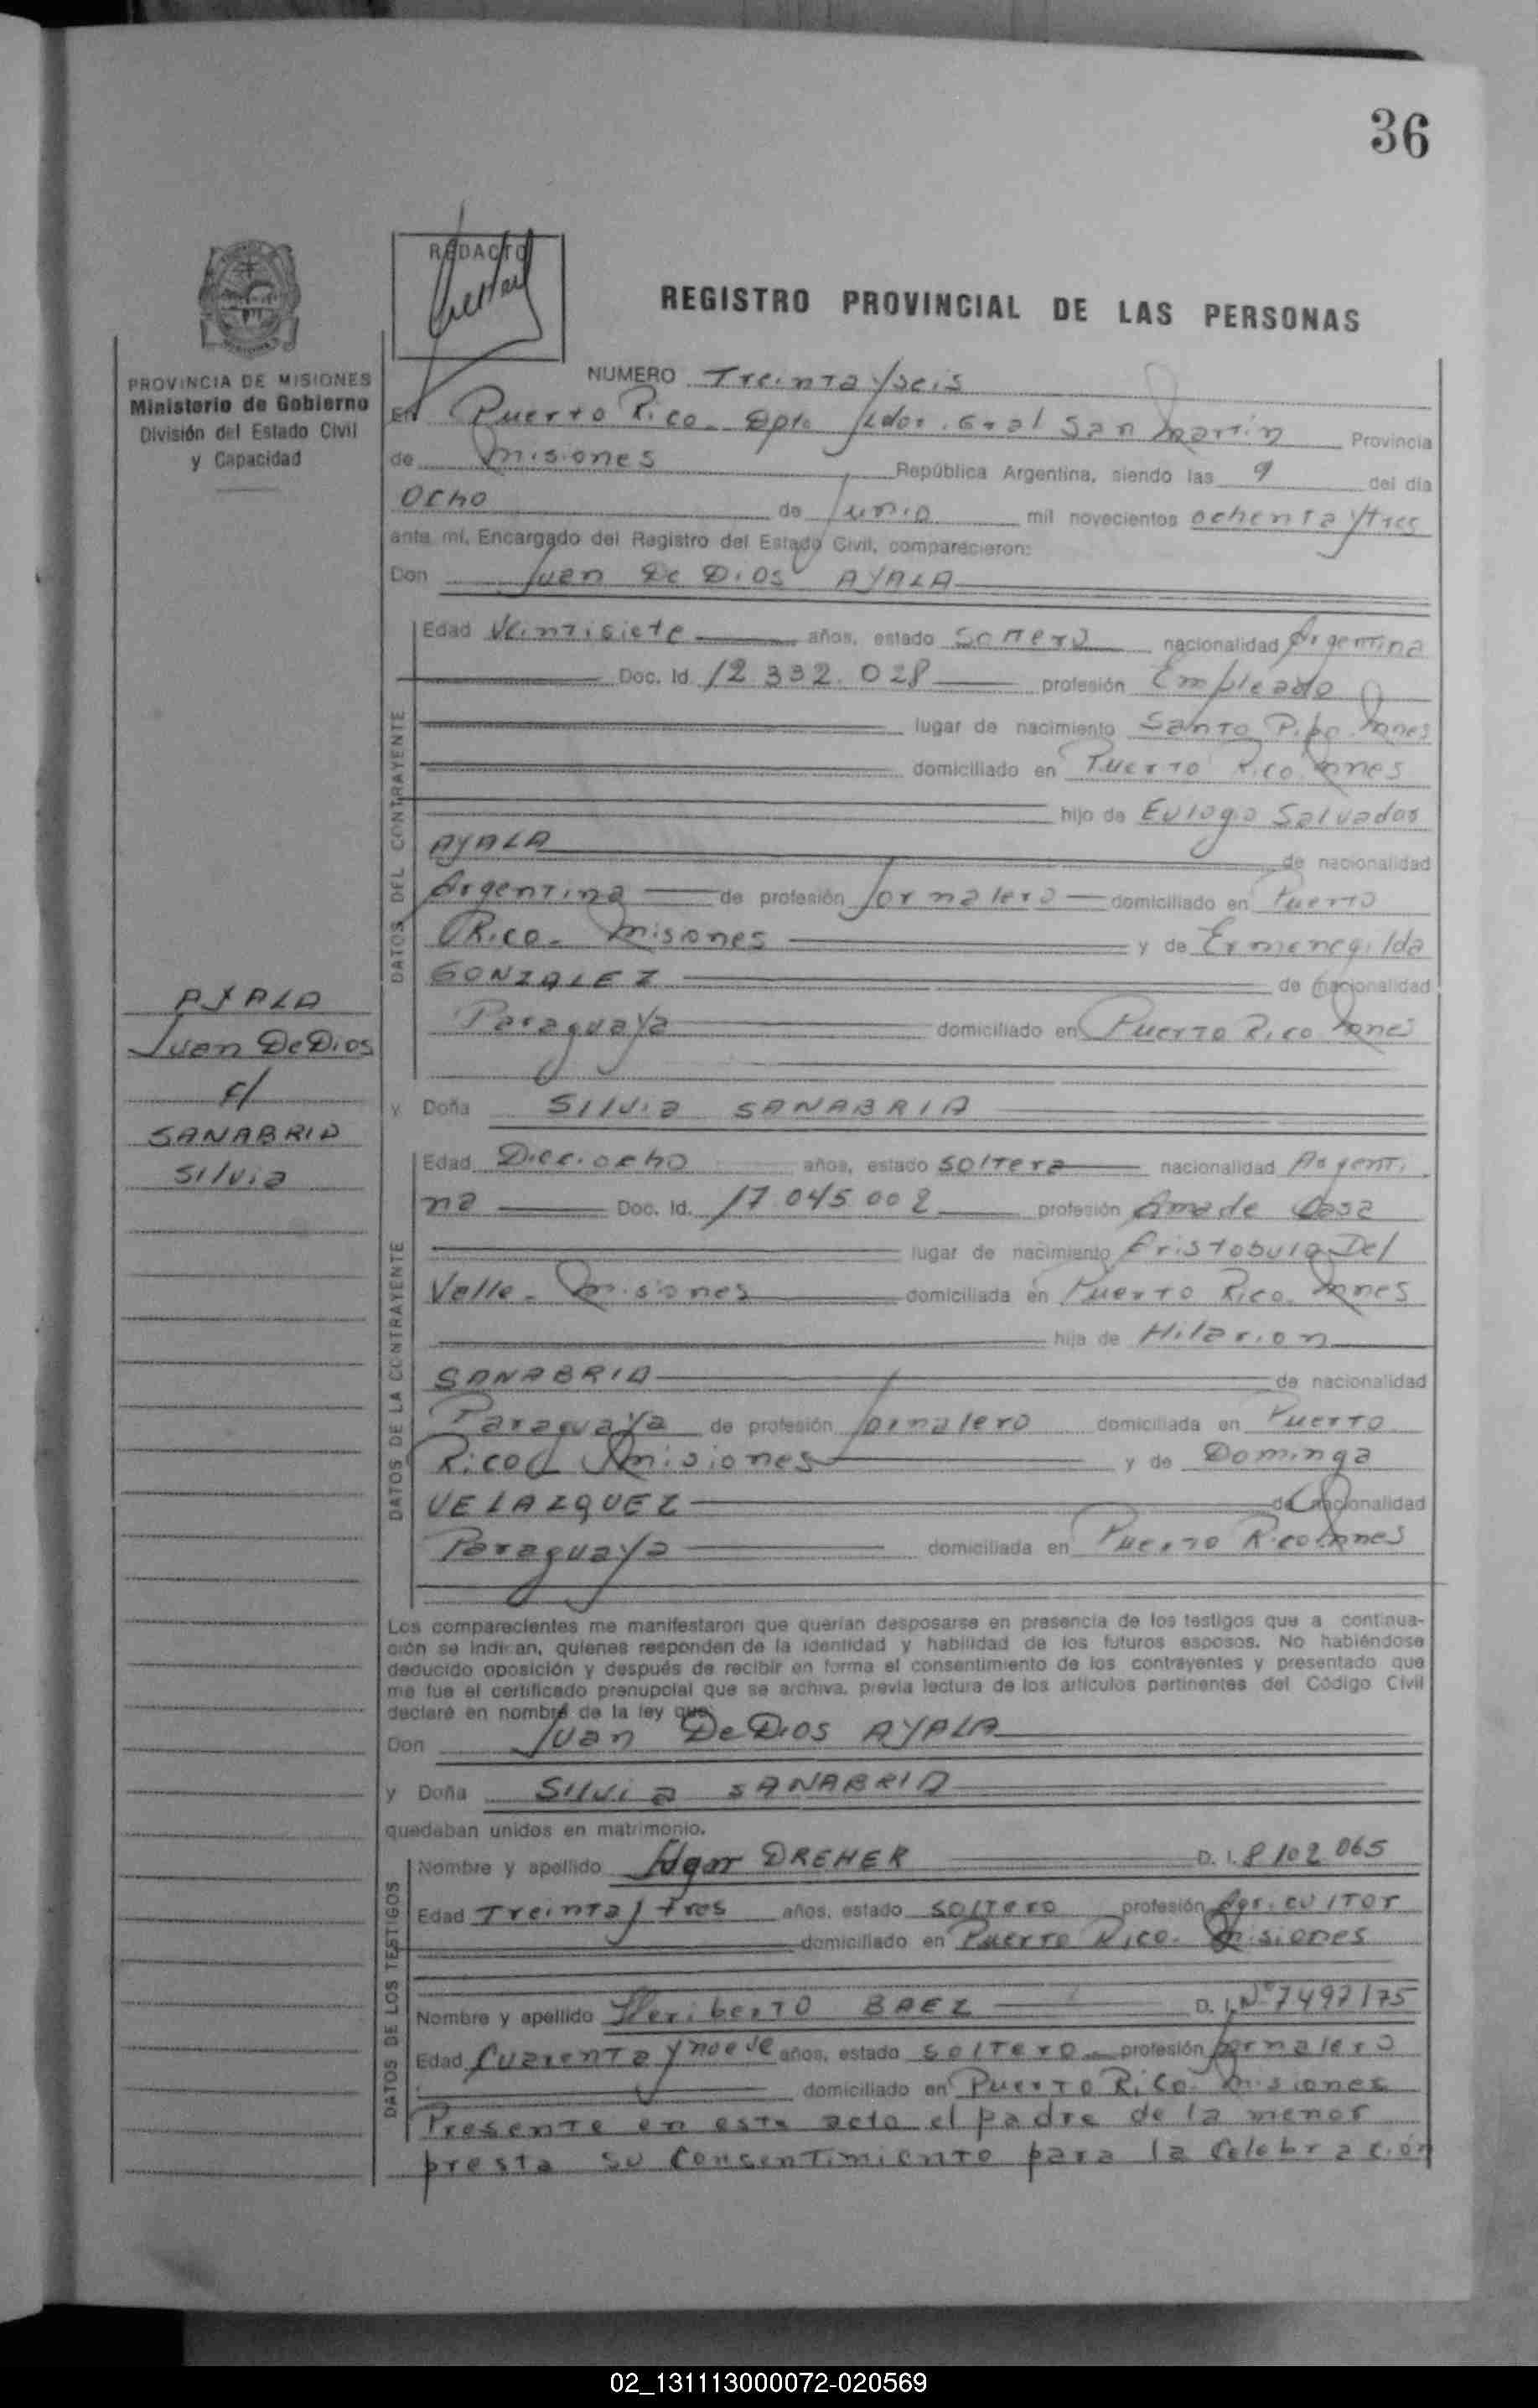 36
REDACTO
REGISTRO PROVINCIAL DE LAS PERSONAS
PROVINCIA DE MISIONES
Ministerio de Gobierno
División del Estado Civil
y Capacidad
NUMERO Treinta y seis
En Puerto Rico. Dpto Ldor. Gral San Martín Provincia
de Misiones República Argentina, siendo las 9 del día
Ocho de Junio mil novecientos ochenta y tres
ante mí, Encargado del Registro del Estado Civil, comparecieron:
Don Juan De Dios AYALA
DATOS DEL CONTRAYENTE
Edad Veintisiete años, estado Soltero nacionalidad Argentina
Doc. Id. 12.332.028 profesión Empleado
lugar de nacimiento Santo Pipo. Mnes
domiciliado en Puerto Rico. Mnes
hijo de Eulogio Salvador
AYALA de nacionalidad
Argentina de profesión Jornalero domiciliado en Puerto
Rico. Misiones y de Ermenegilda
GONZALEZ de nacionalidad
Paraguaya domiciliado en Puerto Rico Mnes
AYALA
Juan De Dios
c/
SANABRIA
Silvia
y Doña Silvia SANABRIA
DATOS DE LA CONTRAYENTE
Edad Dieciocho años, estado Soltera nacionalidad Argenti
na Doc. Id. 17.045.002 profesión Ama de Casa
lugar de nacimiento Aristobulo Del
Valle. Misiones domiciliada en Puerto Rico. Mnes
hija de Hilarion
SANABRIA de nacionalidad
Paraguaya de profesión Jornalero domiciliada en Puerto
Rico Misiones y de Dominga
VELAZQUEZ de nacionalidad
Paraguaya domiciliada en Puerto Rico Mnes
Los comparecientes me manifestaron que querían desposarse en presencia de los testigos que a continua-
ción se indican, quienes responden de la identidad y habilidad de los futuros esposos. No habiéndose
deducido oposición y después de recibir en forma el consentimiento de los contrayentes y presentado que
me fue el certificado prenupcial que se archiva, previa lectura de los artículos pertinentes del Código Civil
declaré en nombre de la ley que:
Don Juan De Dios AYALA
y Doña Silvia SANABRIA
quedaban unidos en matrimonio.
DATOS DE LOS TESTIGOS
Nombre y apellido Edgar DREHER D. I. 8102.065
Edad Treinta y tres años, estado soltero profesión Agricultor
domiciliado en Puerto Rico. Misiones
Nombre y apellido Heriberto BAEZ D. I. Nº 7497175
Edad Cuarenta y nueve años, estado soltero profesión Jornalero
domiciliado en Puerto Rico. Misiones
Presente en este acto el padre de la menor
presta su consentimiento para la celebración
02_131113000072-020569